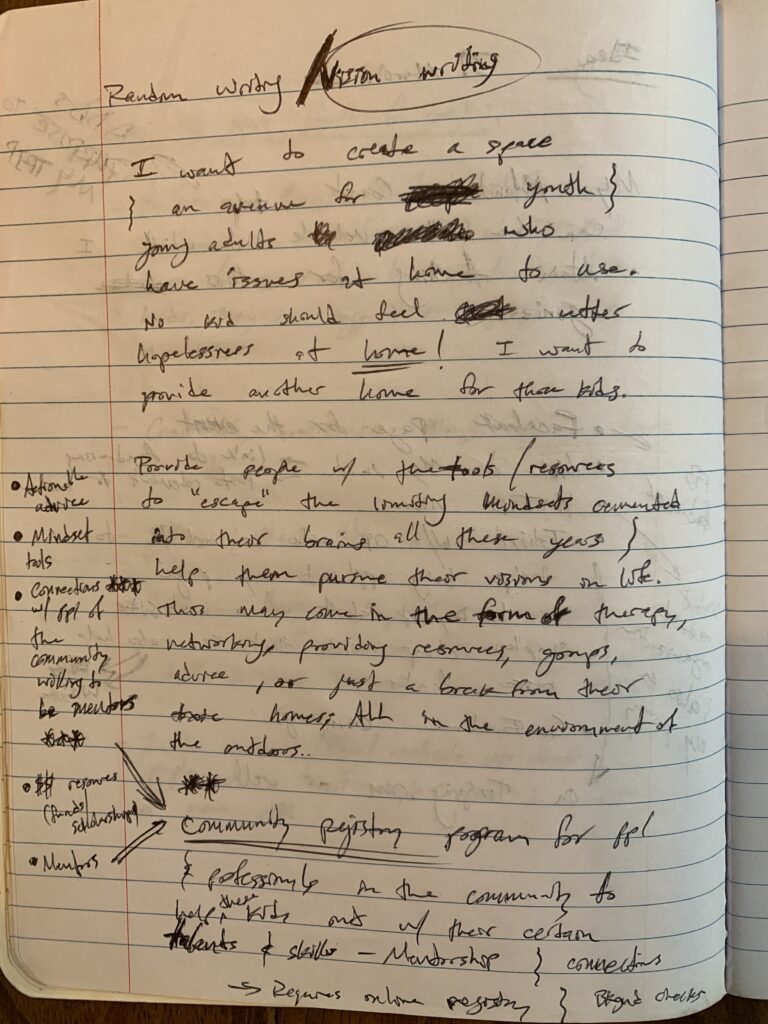 Random writing / Vision writing
I want to create a space
} an avenue for youth }
young adults who
have issues at home to use.
No kid should feel utter
hopelessness at home! I want to
provide another home for those kids.
Provide people w/ the tools / resources
to "escape" the limiting mindsets cemented
into their brains all these years }
help them pursue their visions in life.
This may come in the form of therapy,
networking, providing resources, groups,
advice, or just a break from their
homes; ALL in the environment of
the outdoors..
• Actionable
advice
• Mindset
tools
• Connections
w/ ppl of
the
community
willing to
be mentors
• $$ resources
(funds/
scholarships)
• Mentors
Community registry program for ppl
{ professionals in the community to
help these kids out w/ their certain
talents & skills - Mentorship } connections
→ Requires online registry } Bkgrd checks